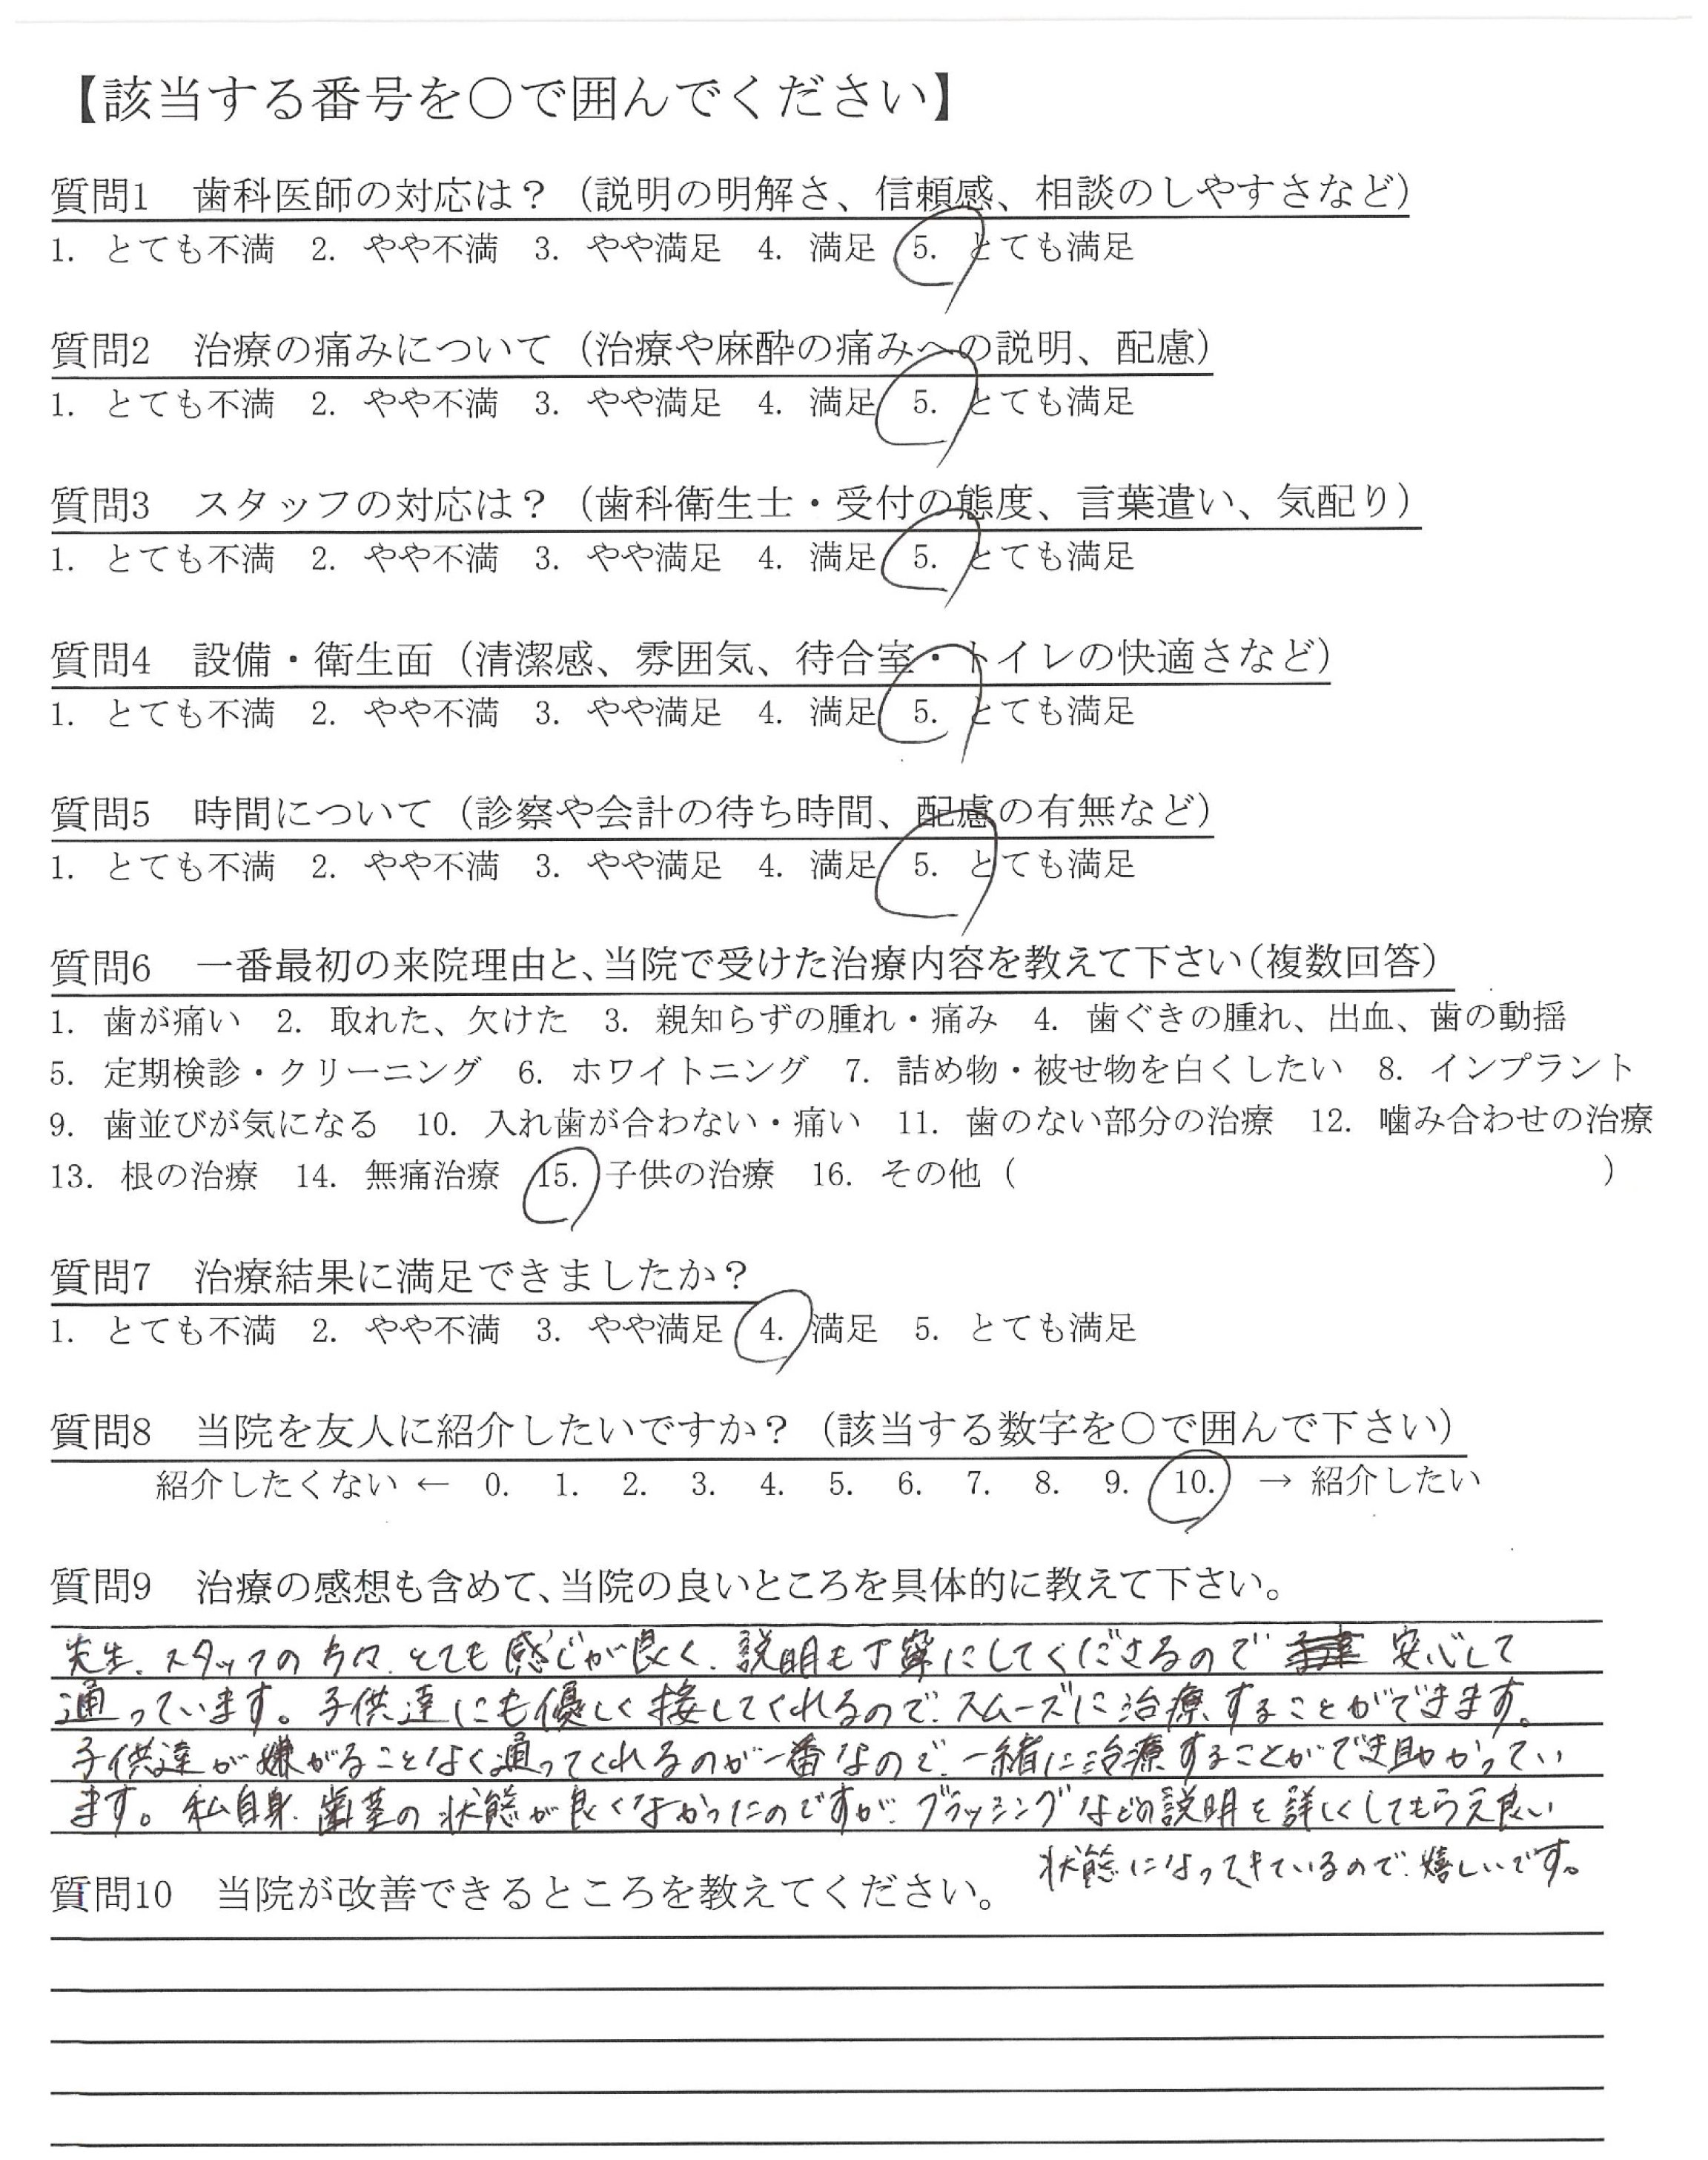 【該当する番号を○で囲んでください】
質問1　歯科医師の対応は？（説明の明解さ、信頼感、相談のしやすさなど）
1. とても不満　2. やや不満　3. やや満足　4. 満足　5. とても満足
質問2　治療の痛みについて（治療や麻酔の痛みへの説明、配慮）
1. とても不満　2. やや不満　3. やや満足　4. 満足　5. とても満足
質問3　スタッフの対応は？（歯科衛生士・受付の態度、言葉遣い、気配り）
1. とても不満　2. やや不満　3. やや満足　4. 満足　5. とても満足
質問4　設備・衛生面（清潔感、雰囲気、待合室・トイレの快適さなど）
1. とても不満　2. やや不満　3. やや満足　4. 満足　5. とても満足
質問5　時間について（診察や会計の待ち時間、配慮の有無など）
1. とても不満　2. やや不満　3. やや満足　4. 満足　5. とても満足
質問6　一番最初の来院理由と、当院で受けた治療内容を教えて下さい（複数回答）
1. 歯が痛い　2. 取れた、欠けた　3. 親知らずの腫れ・痛み　4. 歯ぐきの腫れ、出血、歯の動揺
5. 定期検診・クリーニング　6. ホワイトニング　7. 詰め物・被せ物を白くしたい　8. インプラント
9. 歯並びが気になる　10. 入れ歯が合わない・痛い　11. 歯のない部分の治療　12. 噛み合わせの治療
13. 根の治療　14. 無痛治療　15. 子供の治療　16. その他（　　　　　　　　）
質問7　治療結果に満足できましたか？
1. とても不満　2. やや不満　3. やや満足　4. 満足　5. とても満足
質問8　当院を友人に紹介したいですか？（該当する数字を○で囲んで下さい）
紹介したくない ← 0. 1. 2. 3. 4. 5. 6. 7. 8. 9. 10. → 紹介したい
質問9　治療の感想も含めて、当院の良いところを具体的に教えて下さい。
先生、スタッフの方々、とても感じが良く、説明も丁寧にしてくださるので 安心して
通っています。子供達にも優しく接してくれるので、スムーズに治療することができます。
子供達が嫌がることなく通ってくれるのが一番なので、一緒に治療することができ助かってい
ます。私自身、歯茎の状態が良くなかったのですが、ブラッシングなどの説明を詳しくしてもらえ良い
状態になってきているので、嬉しいです。
質問10　当院が改善できるところを教えてください。